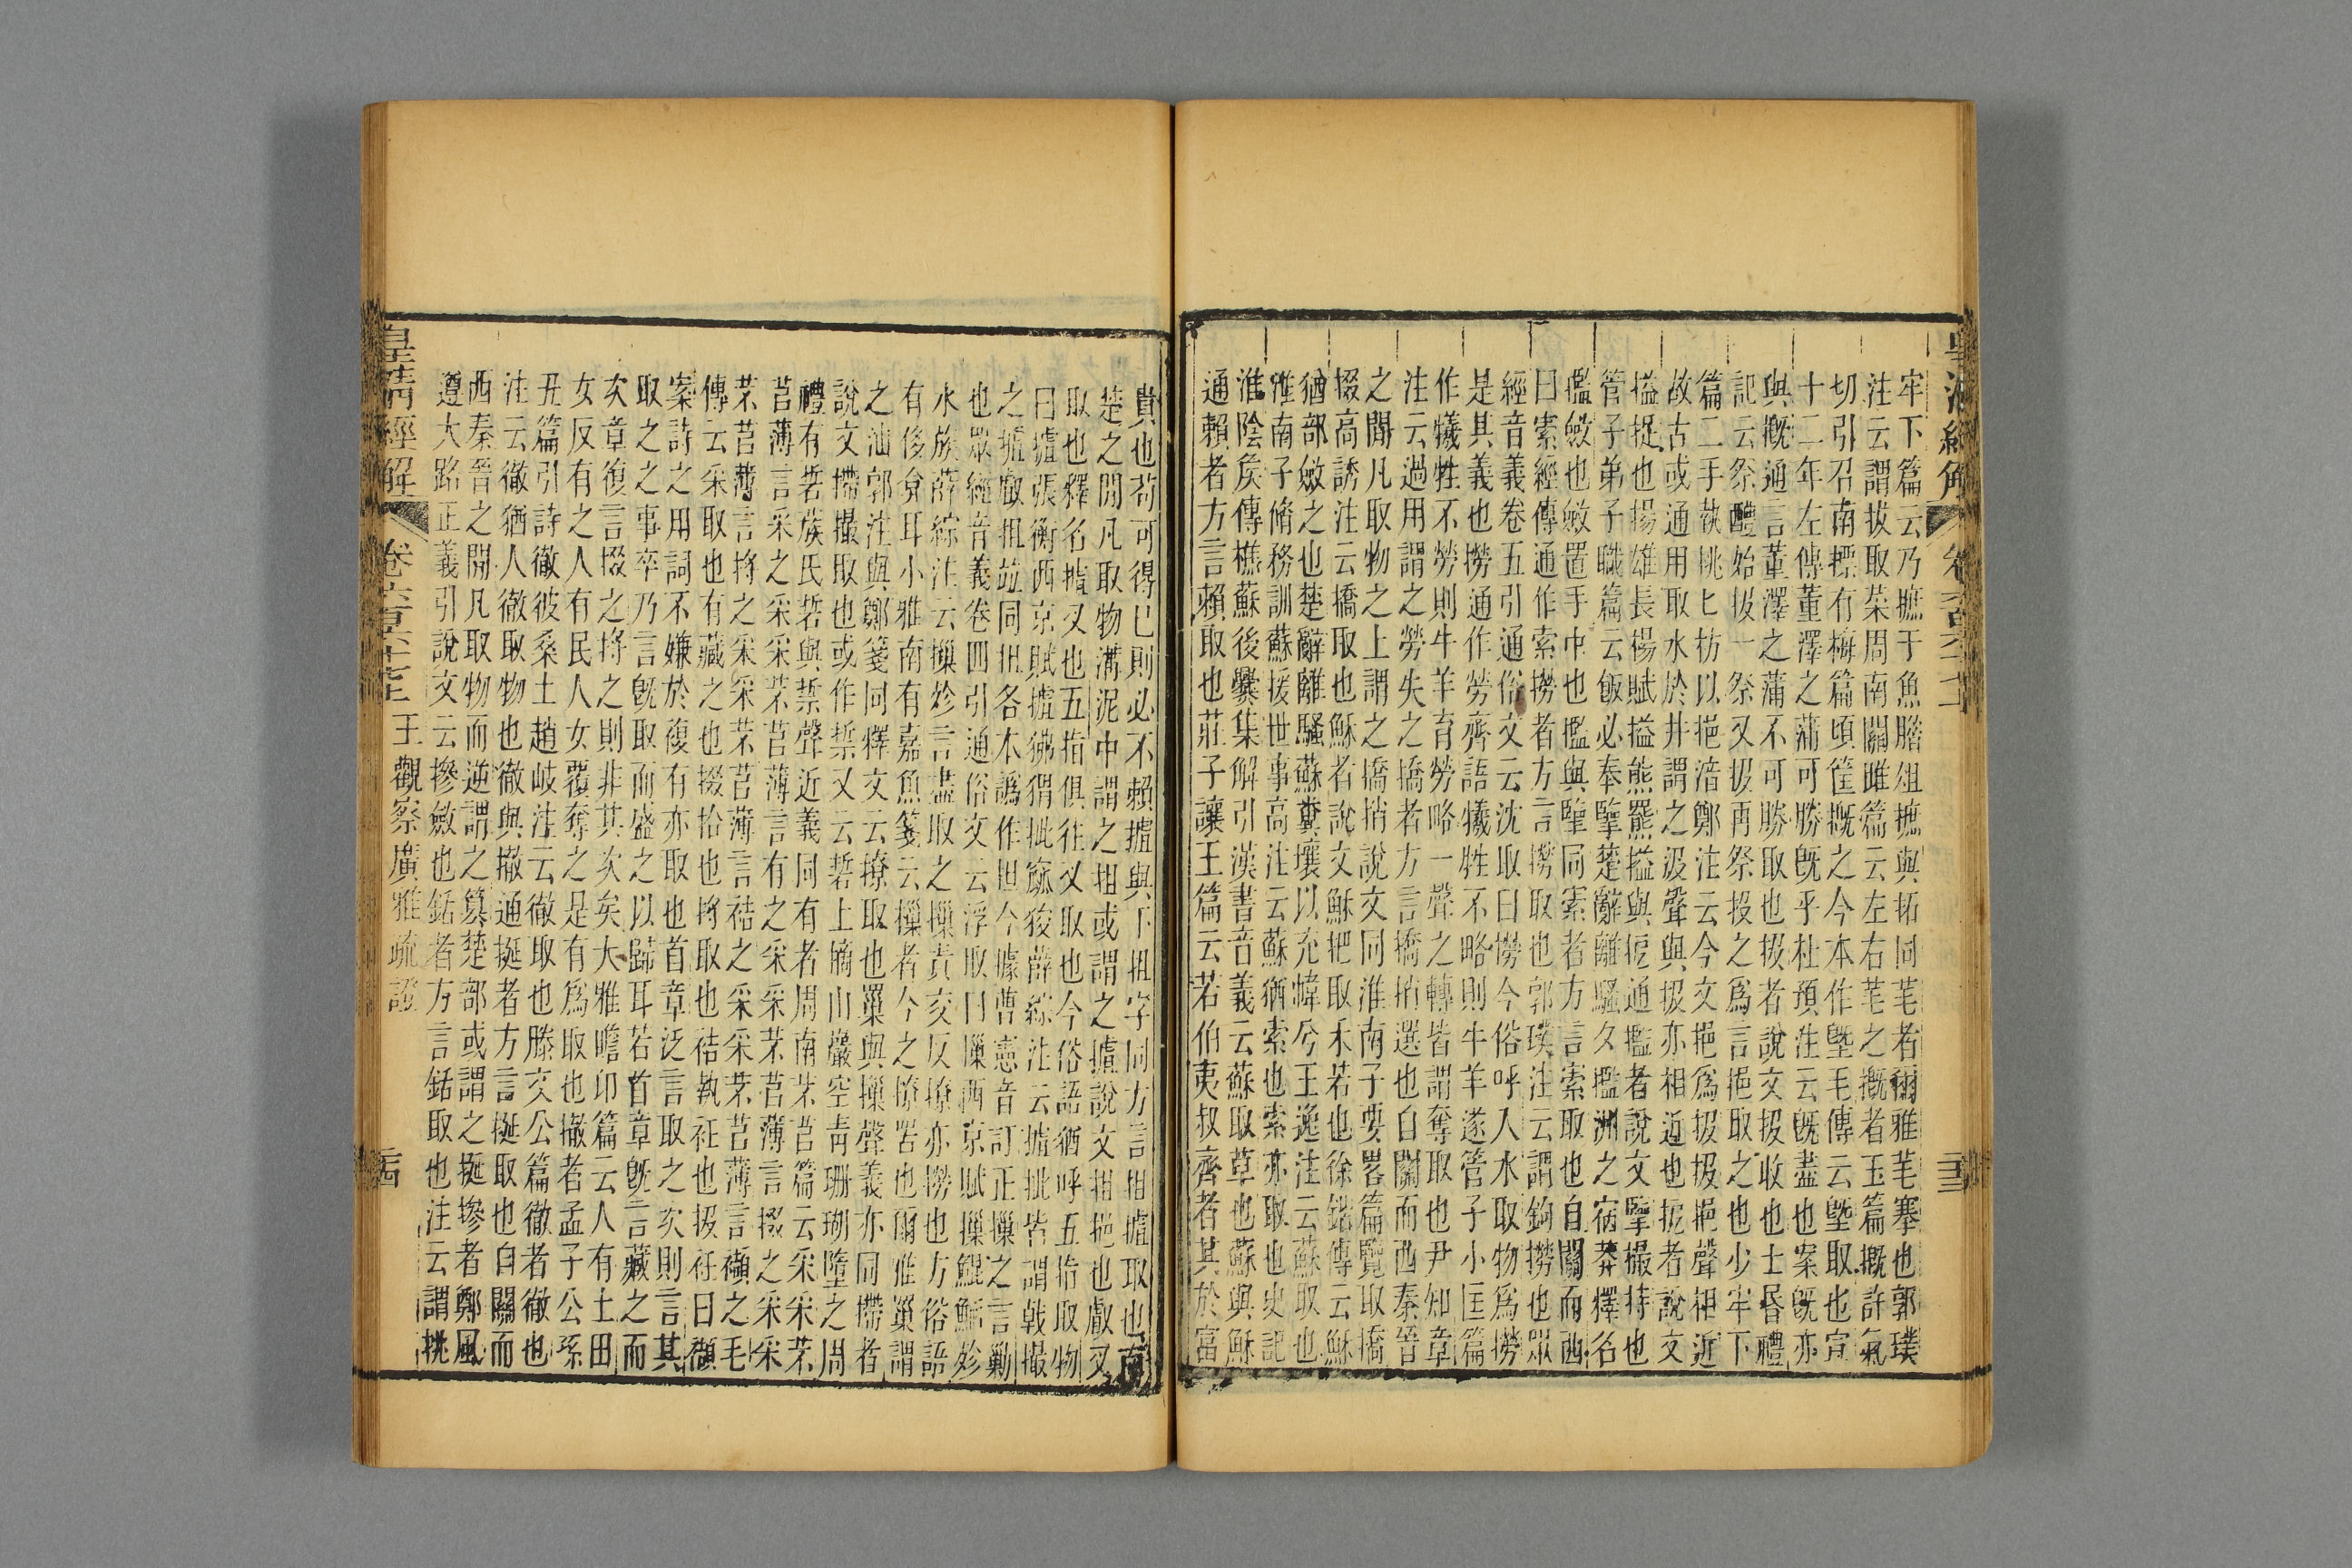 牢下篇云乃摭于魚腊俎摭與拓同芼者爾雅芼搴也郭璞
注云謂拔取菜周南關雎篇云左右芼之摡者玉篇摡許氣
切引召南摽有梅篇頃筐摡之今本作塈毛傳云塈取也宣
十二年左傳董澤之蒲可勝旣乎杜預注云旣盡也案旣亦
與摡通言董澤之蒲不可勝取也扱者說文扱收也士昏禮
記云祭醴始扱一祭又扱再祭扱之爲言挹取之也少牢下
篇二手執挑匕枋以挹湆鄭注云今文挹爲扱扱挹聲相近
故古或通用取水於井謂之汲聲與扱亦相近也抳者說文
搤捉也揚雄長楊賦搤熊羆搤與抳通㩜者說文擥撮持也
管子弟子職篇云飯必奉擥楚辭離騷夕㩜洲之宿莽釋名
㩜斂也斂置手中也㩜與擥同索者方言索取也自關而西
曰索經傳通作索撈者方言撈取也郭璞注云謂鉤撈也眾
經音義卷五引通俗文云沈取曰撈今俗呼人水取物爲撈
是其義也撈通作勞齊語犧牲不略則牛羊遂管子小匡篇
作犧牲不勞則牛羊育勞略一聲之轉皆謂奪取也尹知章
注云過用謂之勞失之撟者方言撟捎選也自關而西秦晉
之閒凡取物之上謂之撟捎說文同淮南子要畧篇覽取撟
掇高誘注云撟取也穌者說文穌把取禾若也徐鍇傳云穌
猶部斂之也楚辭離騷蘇糞壤以充幃兮王逸注云蘇取也
淮南子脩務訓蘇援世事高注云蘇猶索也索亦取也史記
淮陰侯傳樵蘇後爨集解引漢書音義云蘇取草也蘇與穌
通賴者方言賴取也莊子讓王篇云若伯夷叔齊者其於富
皇清經解
貴也苟可得已則必不賴摣與下抯字同方言抯摣取也南
楚之閒凡取物溝泥中謂之抯或謂之摣說文抯挹也䖒又
取也釋名摣叉也五指俱往叉取也今俗語猶呼五指取物
曰摣張衡西京賦摣狒猬批窳狻薛綜注云摣批皆謂戟撮
之摣䖒抯竝同抯各本譌作担今據曹憲音訂正摷之言勦
也眾經音義卷四引通俗文云浮取曰摷西京賦摷鯤鮞殄
水族薛綜注云摷殄言盡取之摷責交反撩亦撈也方俗語
有侈弇耳小雅南有嘉魚箋云摷者今之撩罟也爾雅巢謂
之汕郭注與鄭箋同釋文云撩取也罺與摷聲義亦同摕者
說文摕撮取也或作𢱏又云硩上摘山巖空靑珊瑚墮之周
禮有硩蔟氏硩與𢱏聲近義同有者周南芣苢篇云采采芣
苢薄言采之采采芣苢薄言有之采采芣苢薄言掇之采采
芣苢薄言捋之采采芣苢薄言袺之采采芣苢薄言襭之毛
傳云采取也有藏之也掇拾也捋取也袺執衽也扱衽曰襭
案詩之用詞不嫌於複有亦取也首章泛言取之次則言其
取之之事卒乃言旣取而盛之以歸耳若首章旣言藏之而
次章復言掇之捋之則非其次矣大雅瞻卬篇云人有土田
女反有之人有民人女覆奪之是有爲取也撤者孟子公孫
丑篇引詩徹彼桑土趙岐注云徹取也滕文公篇徹者徹也
注云徹猶人徹取物也徹與撤通挻者方言挻取也自關而
西秦晉之閒凡取物而逆謂之篡楚部或謂之挻摻者鄭風
遵大路正義引說文云摻斂也銛者方言銛取也注云謂挑
皇清經解 王觀察廣雅疏證